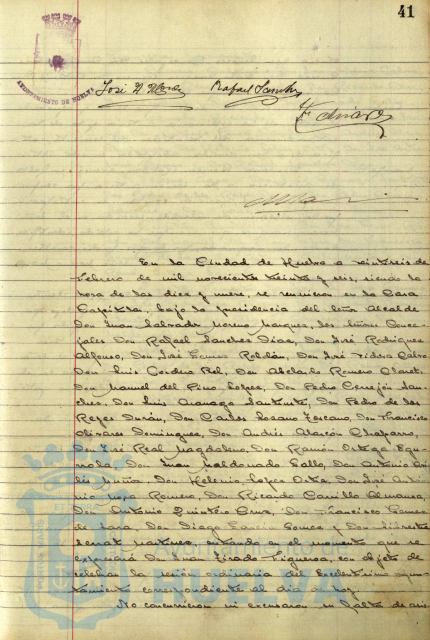 41
AYUNTAMIENTO DE HUELVA
José
Rafael Sanchez
En la Ciudad de Huelva a veintiseis de
Febrero de mil novecientos treinta y seis, siendo la
hora de las diez y nueve, se reunieron en la Casa
Capitular, bajo la presidencia del Señor Alcalde
Don Juan Salvador Moreno Marquez, los Señores Conce-
jales Don Rafael Sanchez Diaz, Don José Rodriguez
Alfonso, Don José Gomez Roldán, Don José Tidora Calvo,
Don Luis Cordero Bel, Don Abelardo Romero Claret,
Don Manuel del Pino Lopez, Don Pedro Cerrejón San-
chez, Don Luis Don Pedro de los
Reyes Durán, Don Carlos Lozano Toscano, Don Francisco
Olivares Dominguez, Don Andrés Alarcón Chaparro,
Don José Real Magdaleno, Don Ramón Ortega Equ-
rrola, Don Juan Maldonado Gallo, Don Antonio
Don Helenio Lopez Ortiz, Don José Anto-
nio Romero, Don Ricardo Carrillo Almansa,
Don Antonio Quintero Cruz, Don Francisco Gomez
de Lara, Don Diego Garcia Gomez y Don Silvestre
Martinez, entrando en el momento que se
expresará Don Juan Tirado Figueroa, con objeto de
celebrar la sesión ordinaria del Excelentisimo Ayun-
tamiento correspondiente al dia de hoy.
No concurrieron ni excusaron su falta de asis-